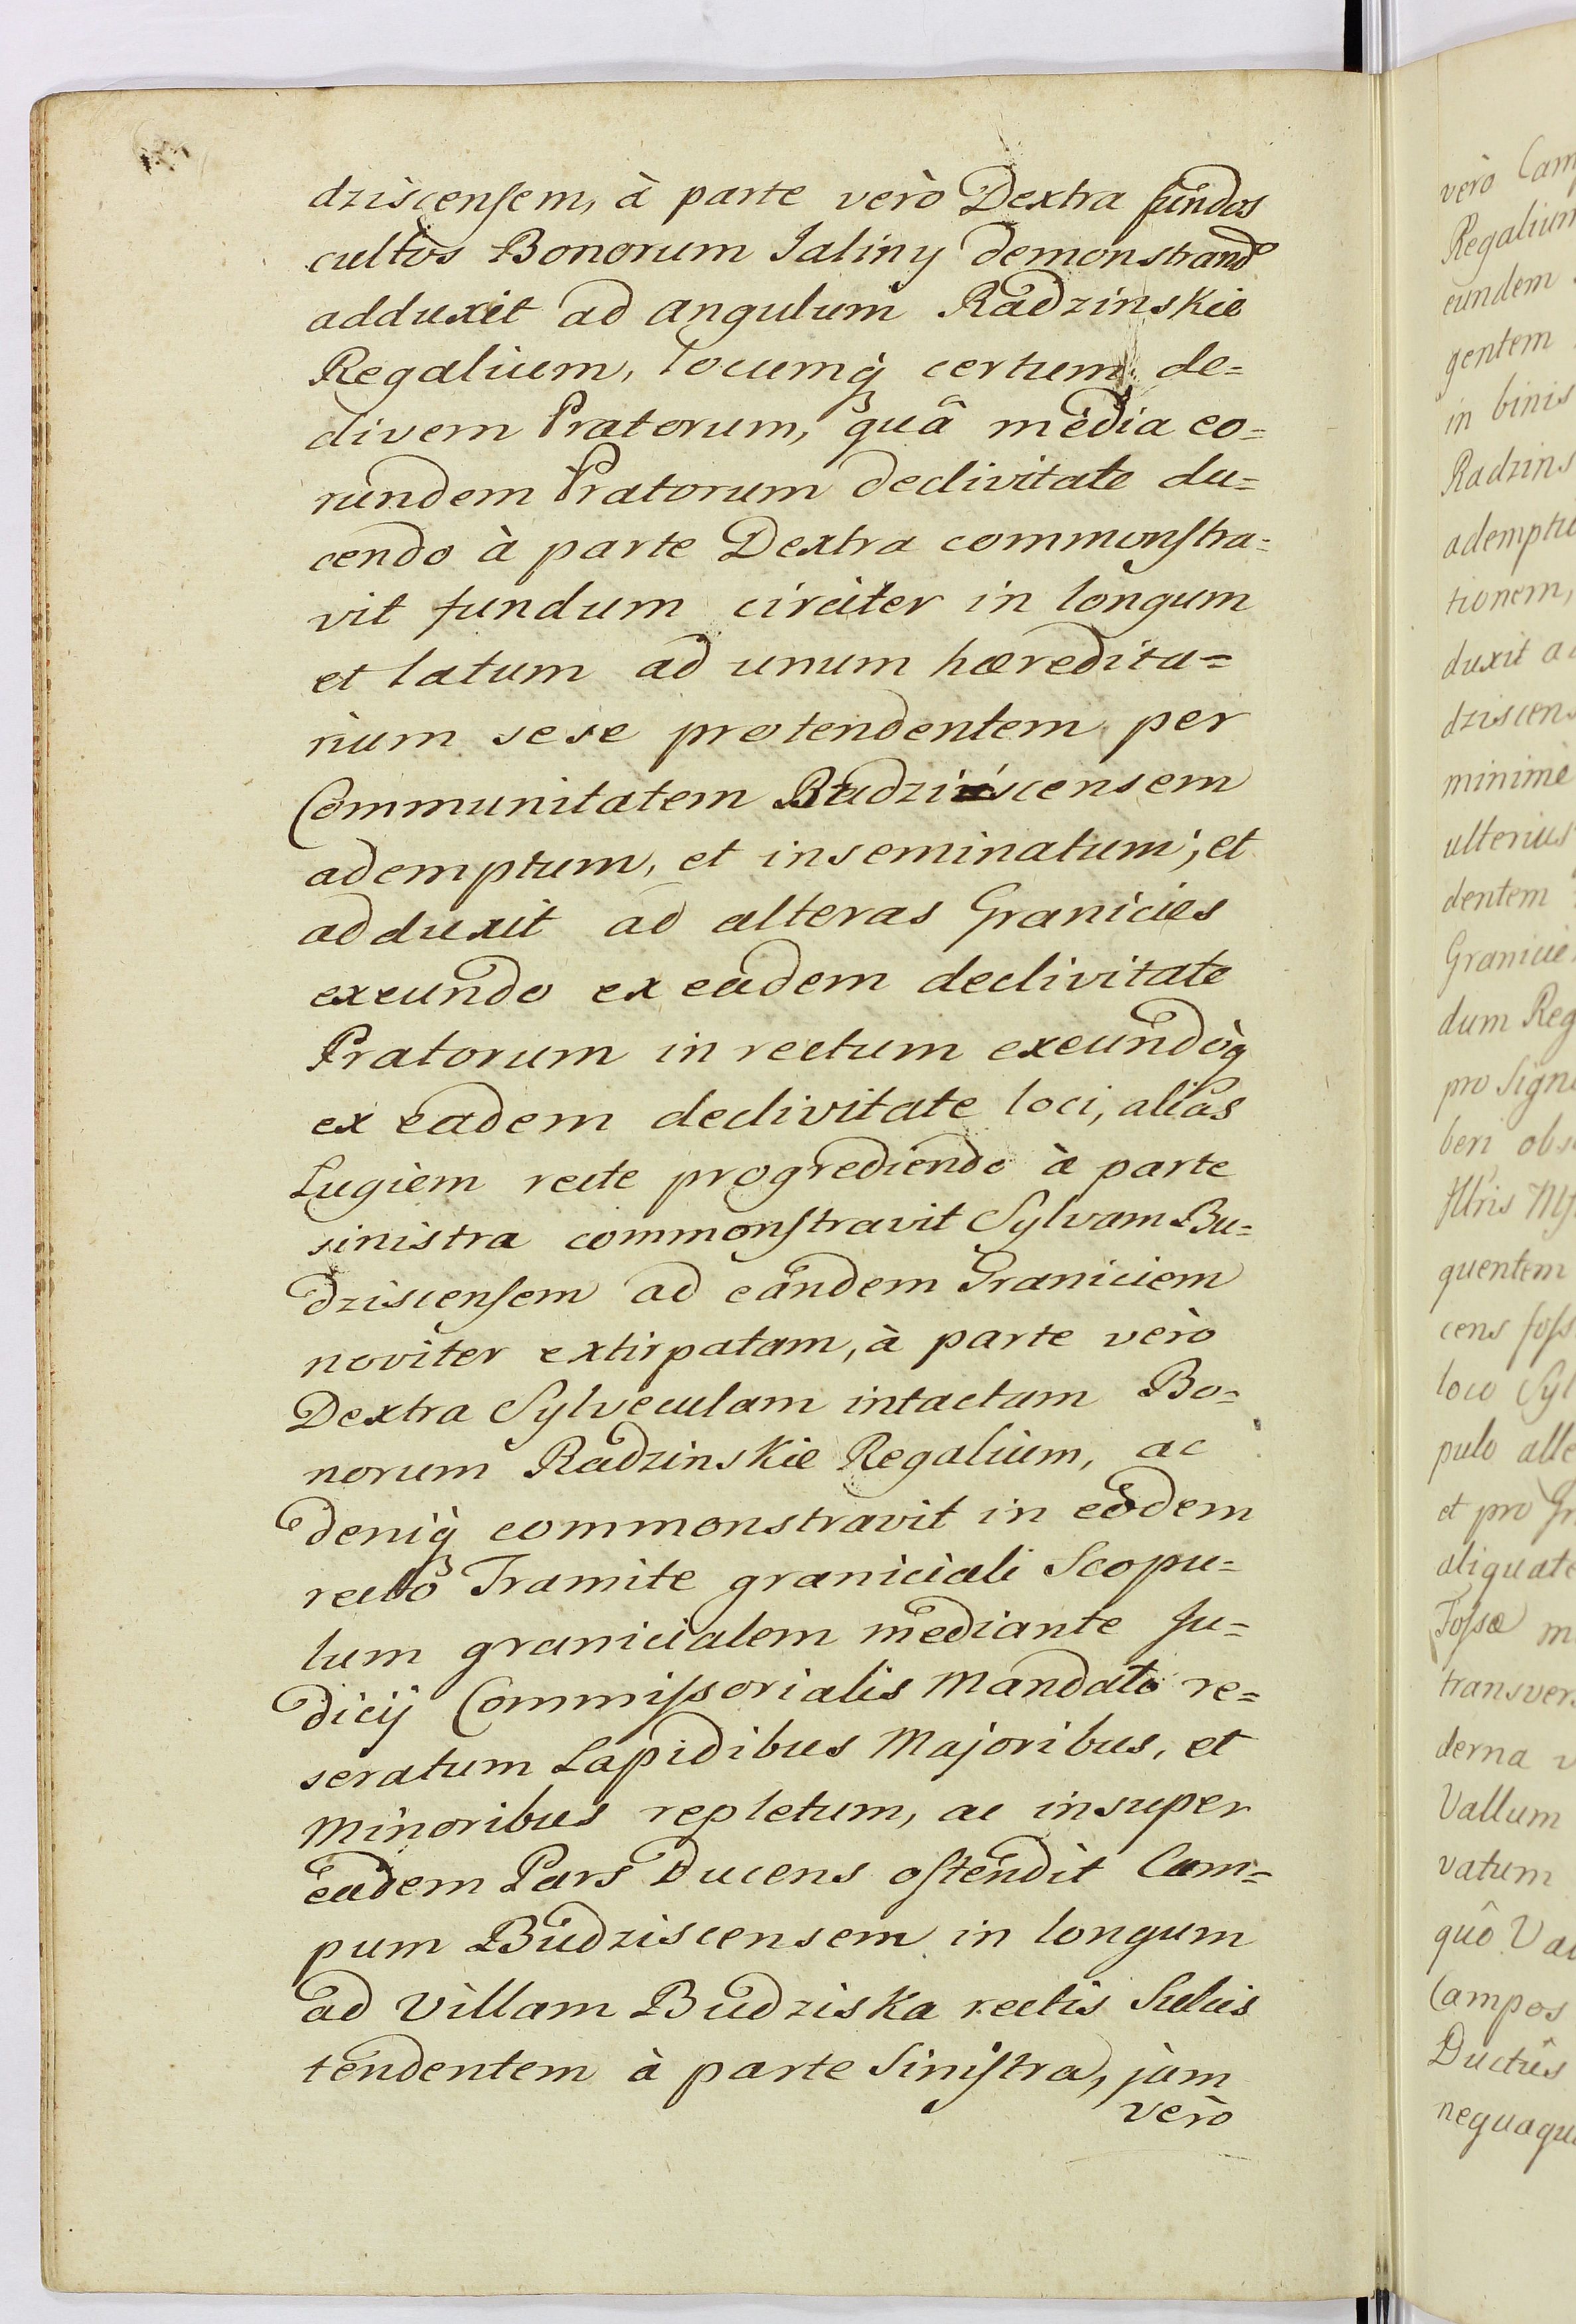 dziscensem, à parte verò Dextra fundos
cultos Bonorum Jaliny demonstrand
adduxit ad angulum Radzinskie
Regalium, locumq̀ certum de=
clivem Pratorum, quâ media eo=
rundem Pratorum declivitate du=
cendo à parte Dextra commonstra=
vit fundum circiter in longum
et latum ad unum hæredita=
rium sese protendentem per
Communitatem Budziscensem
ademptum, et inseminatum; et
adduxit ad alteras Granicies
exeundo ex eadem declivitate
Pratorum in rectum exeundoq̀
ex eadem declivitate loci, alias
Lugiem recte progrediendo à parte
sinistra commonstravit Sylvam Bu=
dziscensem ad eandem Graniciem
noviter extirpatam, à parte verò
Dextra Sylveculam intactam Bo=
norum Radzinskie Regalium, ac
deniq̀ commonstravit in eôdem
rectô Tramite graniciali Scopu=
lum granicialem mediante Ju=
dicij Commissorialis Mandato re=
seratum Lapidibus Majoribus, et
Minoribus repletum, ac insuper
eadem Pars Ducens ostendit Cam=
pum Budziscensem in longum
ad Villam Budziska rectis Sulcis
tendentem à parte Sinistra, jam
verò
verò Cam
Regalium
eundem
gentem
in binis
Radzins
adempti
tionem,
duxit a
dziscens
minime
ulterius
dentem
Granicie
dum Reg
pro Sign
beri obs
quentem
cens foss
loco Syl
pulo alle
et pro Gr
aliquate
Fossæ m
transver
derna v
Vallum
vatum
quô Va
Campos
Ductûs
nequaqu